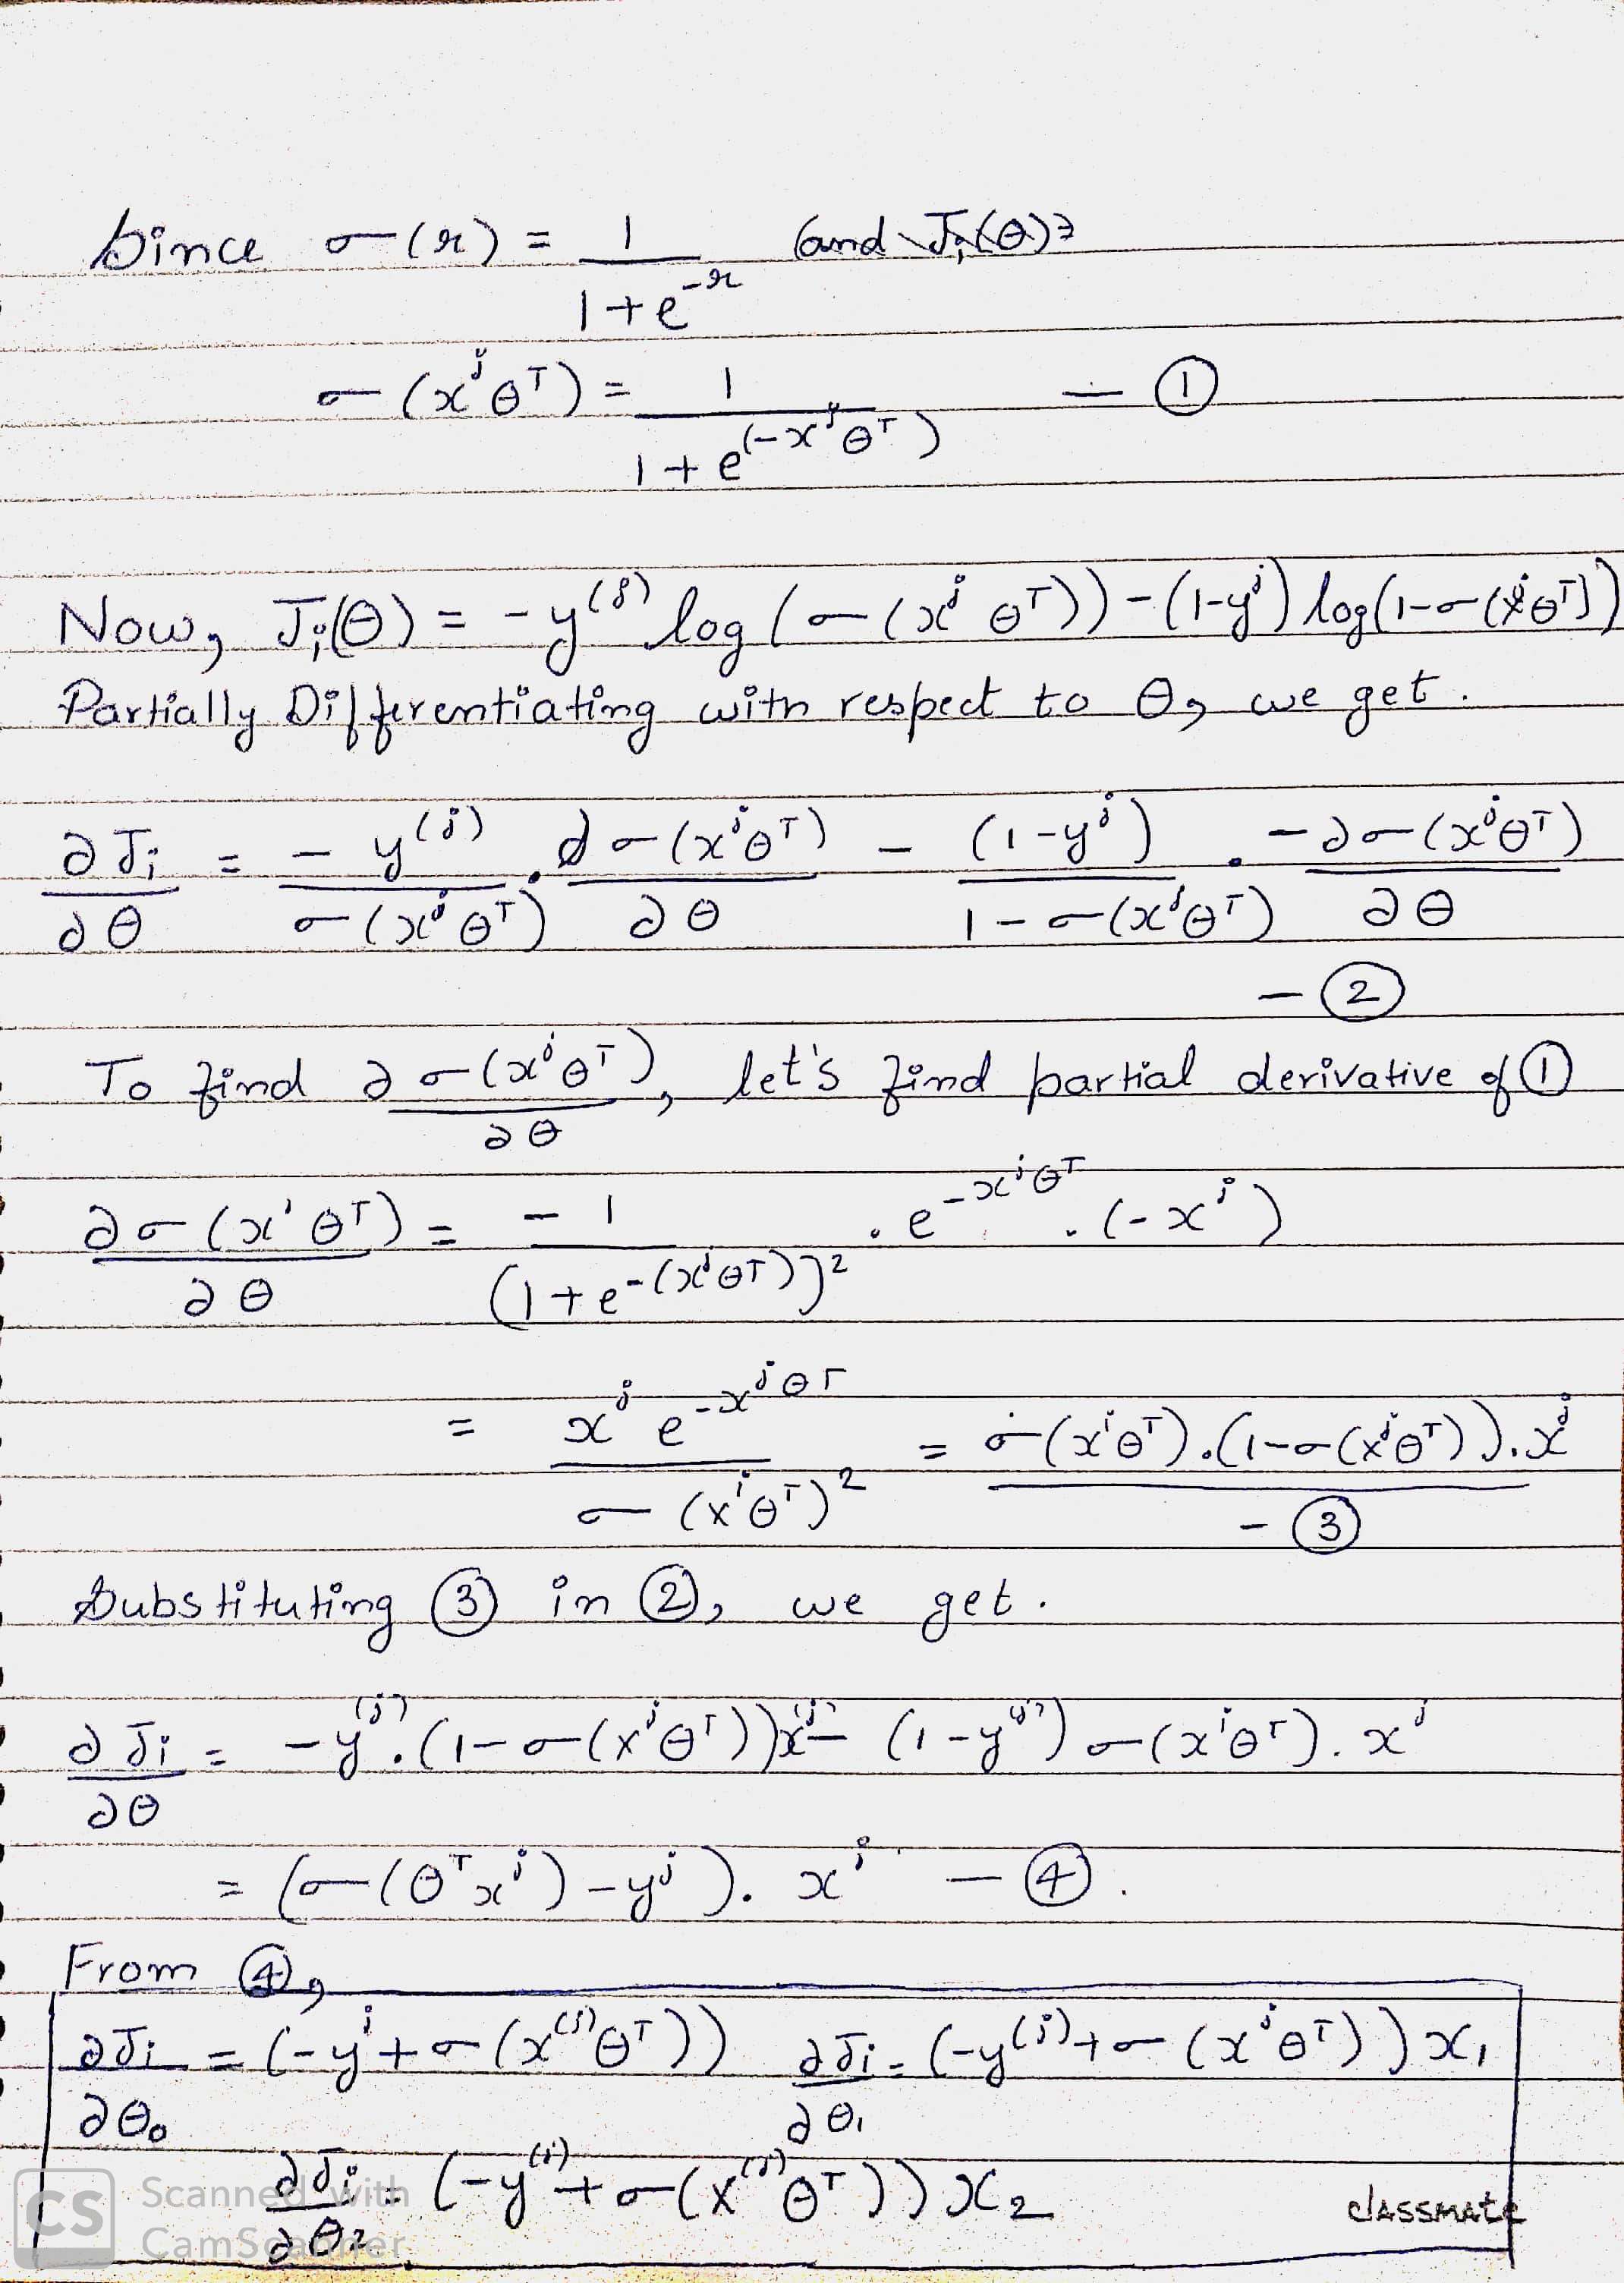 Since σ(r) = 1 / (1+e^{-r}) (and J_i(θ)=
σ(x^j θ^T) = 1 / (1+e^{(-x^j θ^T)}) — ①
Now, J_i(θ) = -y^{(j)} log(σ(x^j θ^T)) - (1-y^j) log(1-σ(x^j θ^T))
Partially Differentiating with respect to θ, we get.
∂J_i/∂θ = - y^{(j)}/σ(x^j θ^T) . ∂σ(x^j θ^T)/∂θ - (1-y^j)/(1-σ(x^j θ^T)) . -∂σ(x^j θ^T)/∂θ
- ②
To find ∂σ(x^j θ^T)/∂θ, let's find partial derivative of ①
∂σ(x^j θ^T)/∂θ = -1/(1+e^{-(x^j θ^T)})^2 . e^{-x^j θ^T} . (-x^j)
= x^j e^{-x^j θ^T} / σ(x^j θ^T)^2 = σ(x^j θ^T).(1-σ(x^j θ^T)).x^j
- ③
Substituting ③ in ②, we get.
∂J_i/∂θ = -y^{(j)}.(1-σ(x^j θ^T))x^{(j)} - (1-y^{(j)}) σ(x^j θ^T). x^j
= (σ(θ^T x^j) - y^j). x^j — ④.
From ④,
∂J_i/∂θ_0 = (-y^j + σ(x^{(j)} θ^T)) ∂J_i/∂θ_1 = (-y^{(j)} + σ(x^j θ^T)) x_1
∂J_i/∂θ_2 = (-y^{(j)} + σ(x^{(j)} θ^T)) x_2
classmate
CS Scanned with
CamScanner